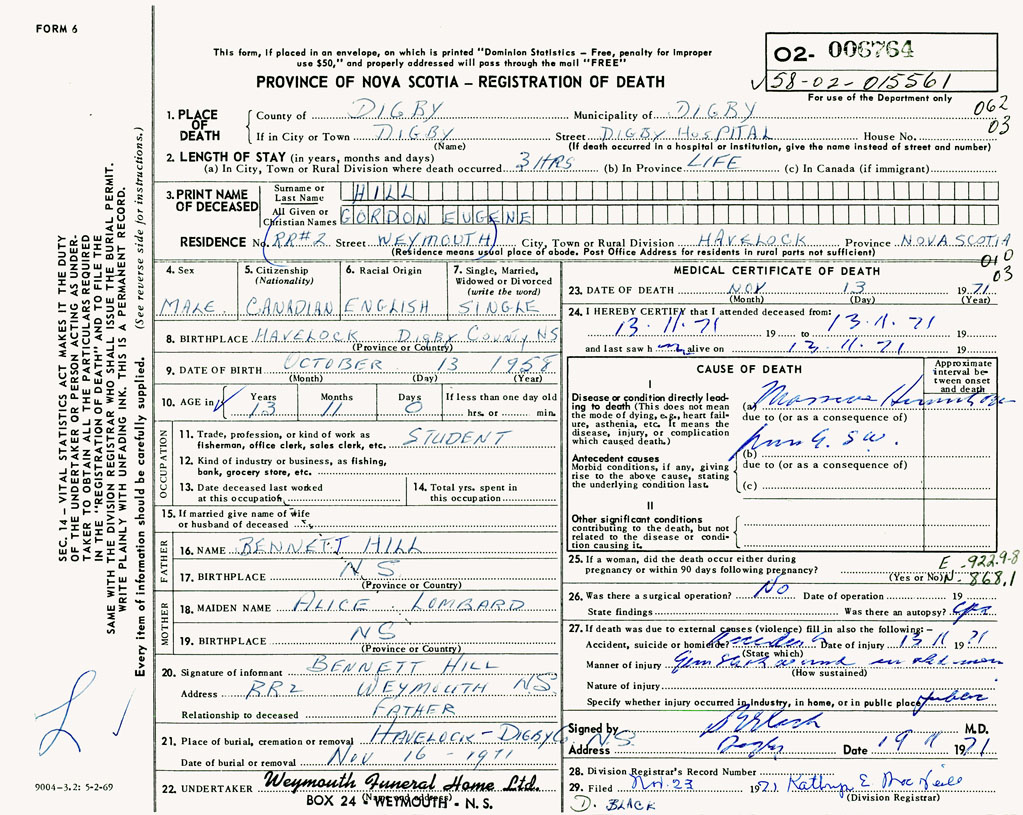 FORM 6
This form, if placed in an envelope, on which is printed "Dominion Statistics – Free, penalty for improper
use $50," and properly addressed will pass through the mail "FREE"
PROVINCE OF NOVA SCOTIA – REGISTRATION OF DEATH
02- 006764
58-02-015561
For use of the Department only
062
03
1. PLACE OF DEATH
County of DIGBY Municipality of DIGBY
If in City or Town DIGBY Street DIGBY HOSPITAL House No.
(Name) (If death occurred in a hospital or institution, give the name instead of street and number)
2. LENGTH OF STAY (in years, months and days)
(a) In City, Town or Rural Division where death occurred 3 HRS (b) In Province LIFE (c) In Canada (if immigrant)
3. PRINT NAME OF DECEASED
Surname or Last Name HILL
All Given or Christian Names GORDON EUGENE
RESIDENCE No. RR#2 Street WEYMOUTH City, Town or Rural Division HAVELOCK Province NOVA SCOTIA
(Residence means usual place of abode. Post Office Address for residents in rural parts not sufficient)
010
03
4. Sex MALE
5. Citizenship (Nationality) CANADIAN
6. Racial Origin ENGLISH
7. Single, Married, Widowed or Divorced (write the word) SINGLE
8. BIRTHPLACE HAVELOCK DIGBY COUNTY NS
(Province or Country)
9. DATE OF BIRTH OCTOBER 13 1958
(Month) (Day) (Year)
10. AGE in Years 13 Months 11 Days 0 If less than one day old
hrs. or min.
OCCUPATION
11. Trade, profession, or kind of work as STUDENT
fisherman, office clerk, sales clerk, etc.
12. Kind of industry or business, as fishing,
bank, grocery store, etc.
13. Date deceased last worked at this occupation
14. Total yrs. spent in this occupation
15. If married give name of wife
or husband of deceased
FATHER
16. NAME BENNETT HILL
17. BIRTHPLACE NS
(Province or Country)
MOTHER
18. MAIDEN NAME ALICE LOMBARD
19. BIRTHPLACE NS
(Province or Country)
20. Signature of informant BENNETT HILL
Address RR2 WEYMOUTH NS
Relationship to deceased FATHER
21. Place of burial, cremation or removal HAVELOCK - DIGBY CO N.S.
Date of burial or removal NOV 16 - 1971
22. UNDERTAKER Weymouth Funeral Home Ltd.
(Name and address)
BOX 24 - WEYMOUTH - N.S.
MEDICAL CERTIFICATE OF DEATH
23. DATE OF DEATH NOV 13 1971
(Month) (Day) (Year)
24. I HEREBY CERTIFY that I attended deceased from:
13.11.71 19 to 13.11.71 19
and last saw h m alive on 13.11.71 19
CAUSE OF DEATH
Approximate interval between onset and death
I
Disease or condition directly leading to death (This does not mean the mode of dying, e.g., heart failure, asthenia, etc. It means the disease, injury, or complication which caused death.)
(a) Massive
due to (or as a consequence of)
Antecedent causes
Morbid conditions, if any, giving rise to the above cause, stating the underlying condition last.
(b) G.S.W.
due to (or as a consequence of)
(c)
II
Other significant conditions
contributing to the death, but not related to the disease or condition causing it.
25. If a woman, did the death occur either during
pregnancy or within 90 days following pregnancy? (Yes or No)
E -922.9-8
N - 868.1
26. Was there a surgical operation? No Date of operation 19
State findings Was there an autopsy?
27. If death was due to external causes (violence) fill in also the following:–
Accident, suicide or homicide? Accident Date of injury 13 11 1971
(State which)
Manner of injury Gun
(How sustained)
Nature of injury
Specify whether injury occurred in Industry, in home, or in public place public
Signed by M.D.
Address Digby Date 19 11 1971
28. Division Registrar's Record Number
29. Filed Nov. 23 1971 Kathryn E MacNeill
(Division Registrar)
D. BLACK
SEC. 14 – VITAL STATISTICS ACT MAKES IT THE DUTY
OF THE UNDERTAKER OR PERSON ACTING AS UNDER-
TAKER TO OBTAIN ALL THE PARTICULARS REQUIRED
IN THE "REGISTRATION OF DEATH" AND TO FILE THE
SAME WITH THE DIVISION REGISTRAR WHO SHALL ISSUE THE BURIAL PERMIT.
WRITE PLAINLY WITH UNFADING INK. THIS IS A PERMANENT RECORD.
Every item of information should be carefully supplied. (See reverse side for instructions.)
9004-3.2: 5-2-69